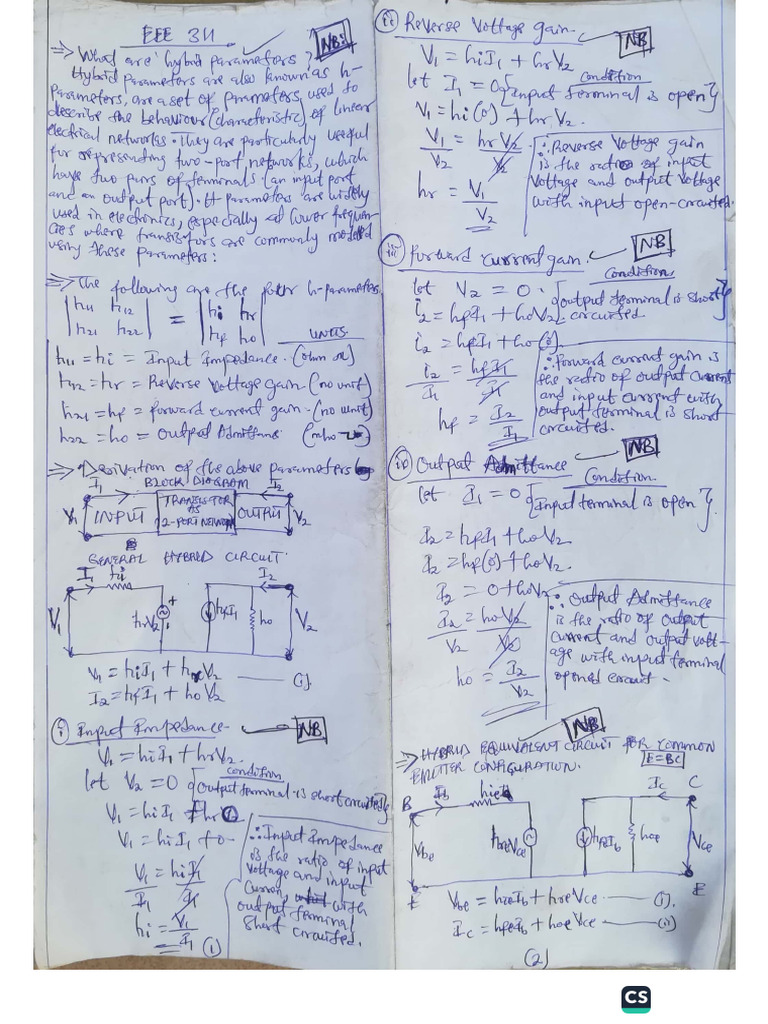 EEE 311
NB:
=> What are hybrid parameters?
Hybrid Parameters are also known as h-
Parameters, are a set of parameters used to
describe the behaviour (characteristic) of linear
electrical networks. They are particularly useful
for representing two-port networks, which
have two pairs of terminals (an input port
and an output port). H parameters are widely
used in electronics, especially at lower frequen-
cies where transistors are commonly modelled
using these parameters:
=> The following are the four h-parameters.
|h11 h12| = |hi hr|
|h21 h22| |hf ho|
UNITS
h11 = hi = Input Impedance. (ohm Ω)
h12 = hr = Reverse Voltage Gain (no unit)
h21 = hf = forward current gain - (no unit)
h22 = ho = Output Admittans (mho ℧)
=> Derivation of the above parameters
BLOCK DIAGRAM
I1 I2
V1 INPUT TRANSISTOR AS 2-PORT NETWORK OUTPUT V2
GENERAL HYBRID CIRCUIT
I1 hi I2
V1 hrV2 + hfI1 ho V2
V1 = hiI1 + hrV2 (i)
I2 = hfI1 + hoV2
(i) Input Impedance - NB
V1 = hiI1 + hrV2.
let V2 = 0 {condition Output terminal is short circuited}
V1 = hiI1 + hr0
V1 = hiI1 + 0
V1/I1 = hiI1/I1
hi = V1/I1
∴ Input Impedance
is the ratio of input
voltage and input
current, with
output terminal
short circuited.
(1)
(ii) Reverse Voltage gain. NB
V1 = hiI1 + hrV2
let I1 = 0 {condition input terminal is open}
V1 = hi(0) + hrV2.
V1/V2 = hrV2/V2
hr = V1/V2
∴ Reverse Voltage gain
is the ratio of input
voltage and output voltage
with input open-circuited.
(iii) Forward current gain. NB
let V2 = 0. {condition output terminal is short circuited}
i2 = hfI1 + hoV2
i2 = hfI1 + ho(0).
i2/I1 = hfI1/I1
hf = I2/I1
∴ forward current gain is
the ratio of output current
and input current with
output terminal is short
circuited.
(iv) Output Admittance NB
let I1 = 0 {Condition. Input terminal is open}
I2 = hfI1 + hoV2
I2 = hf(0) + hoV2.
I2 = 0 + hoV2
I2/V2 = hoV2/V2
ho = I2/V2
∴ Output Admittance
is the ratio of output
current and output volt-
age with input terminal
opened circuit.
NB
=> HYBRID EQUIVALENT CIRCUIT FOR COMMON
EMITTER CONFIGURATION. E=BC
B Ib hie Ic C
Vbe hreVce hfeIb hoe Vce
E E
Vbe = hieIb + hreVce (i).
Ic = hfeIb + hoeVce (ii)
(2)
CS